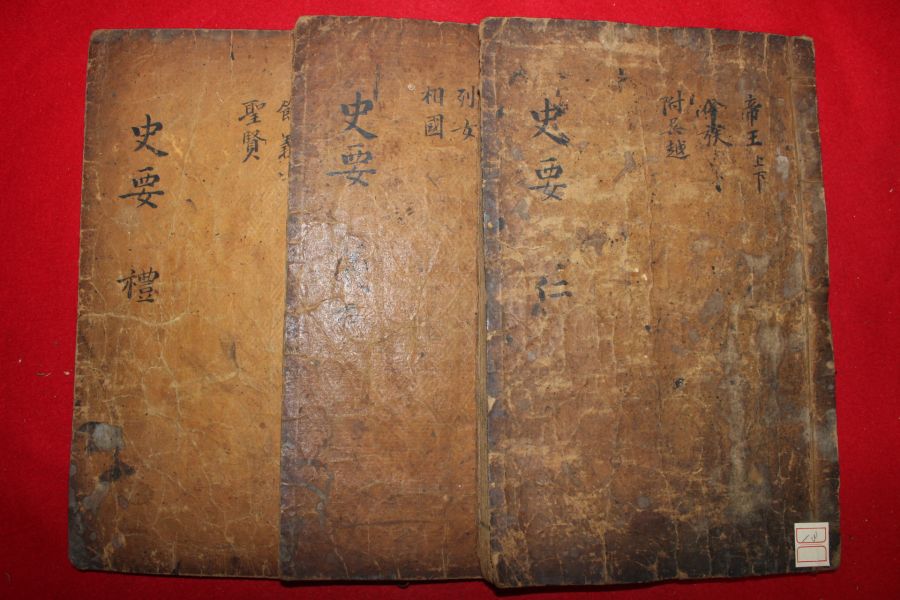 帝王 上下
附吳越
史要 仁
列女
相國
史要
節義
聖賢
史要 禮